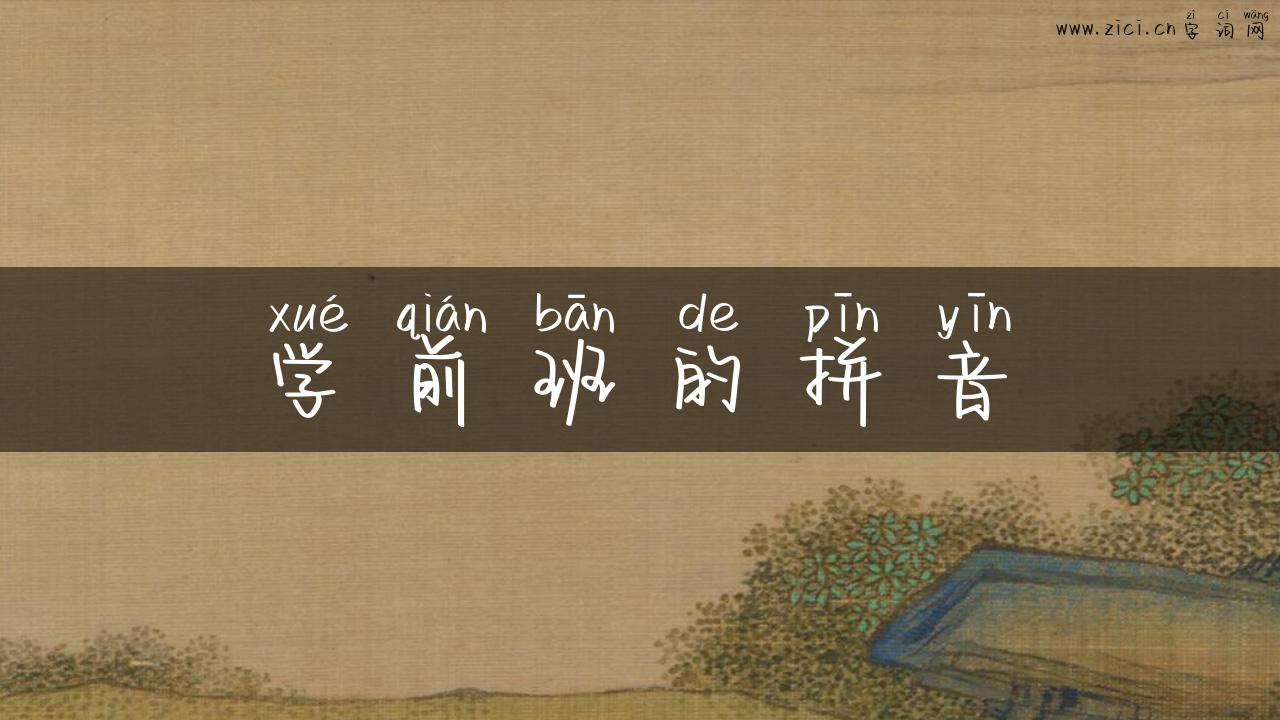 zì cí wǎng
www.zici.cn 字 词 网
xué qián bān de pīn yīn
学 前 班 的 拼 音